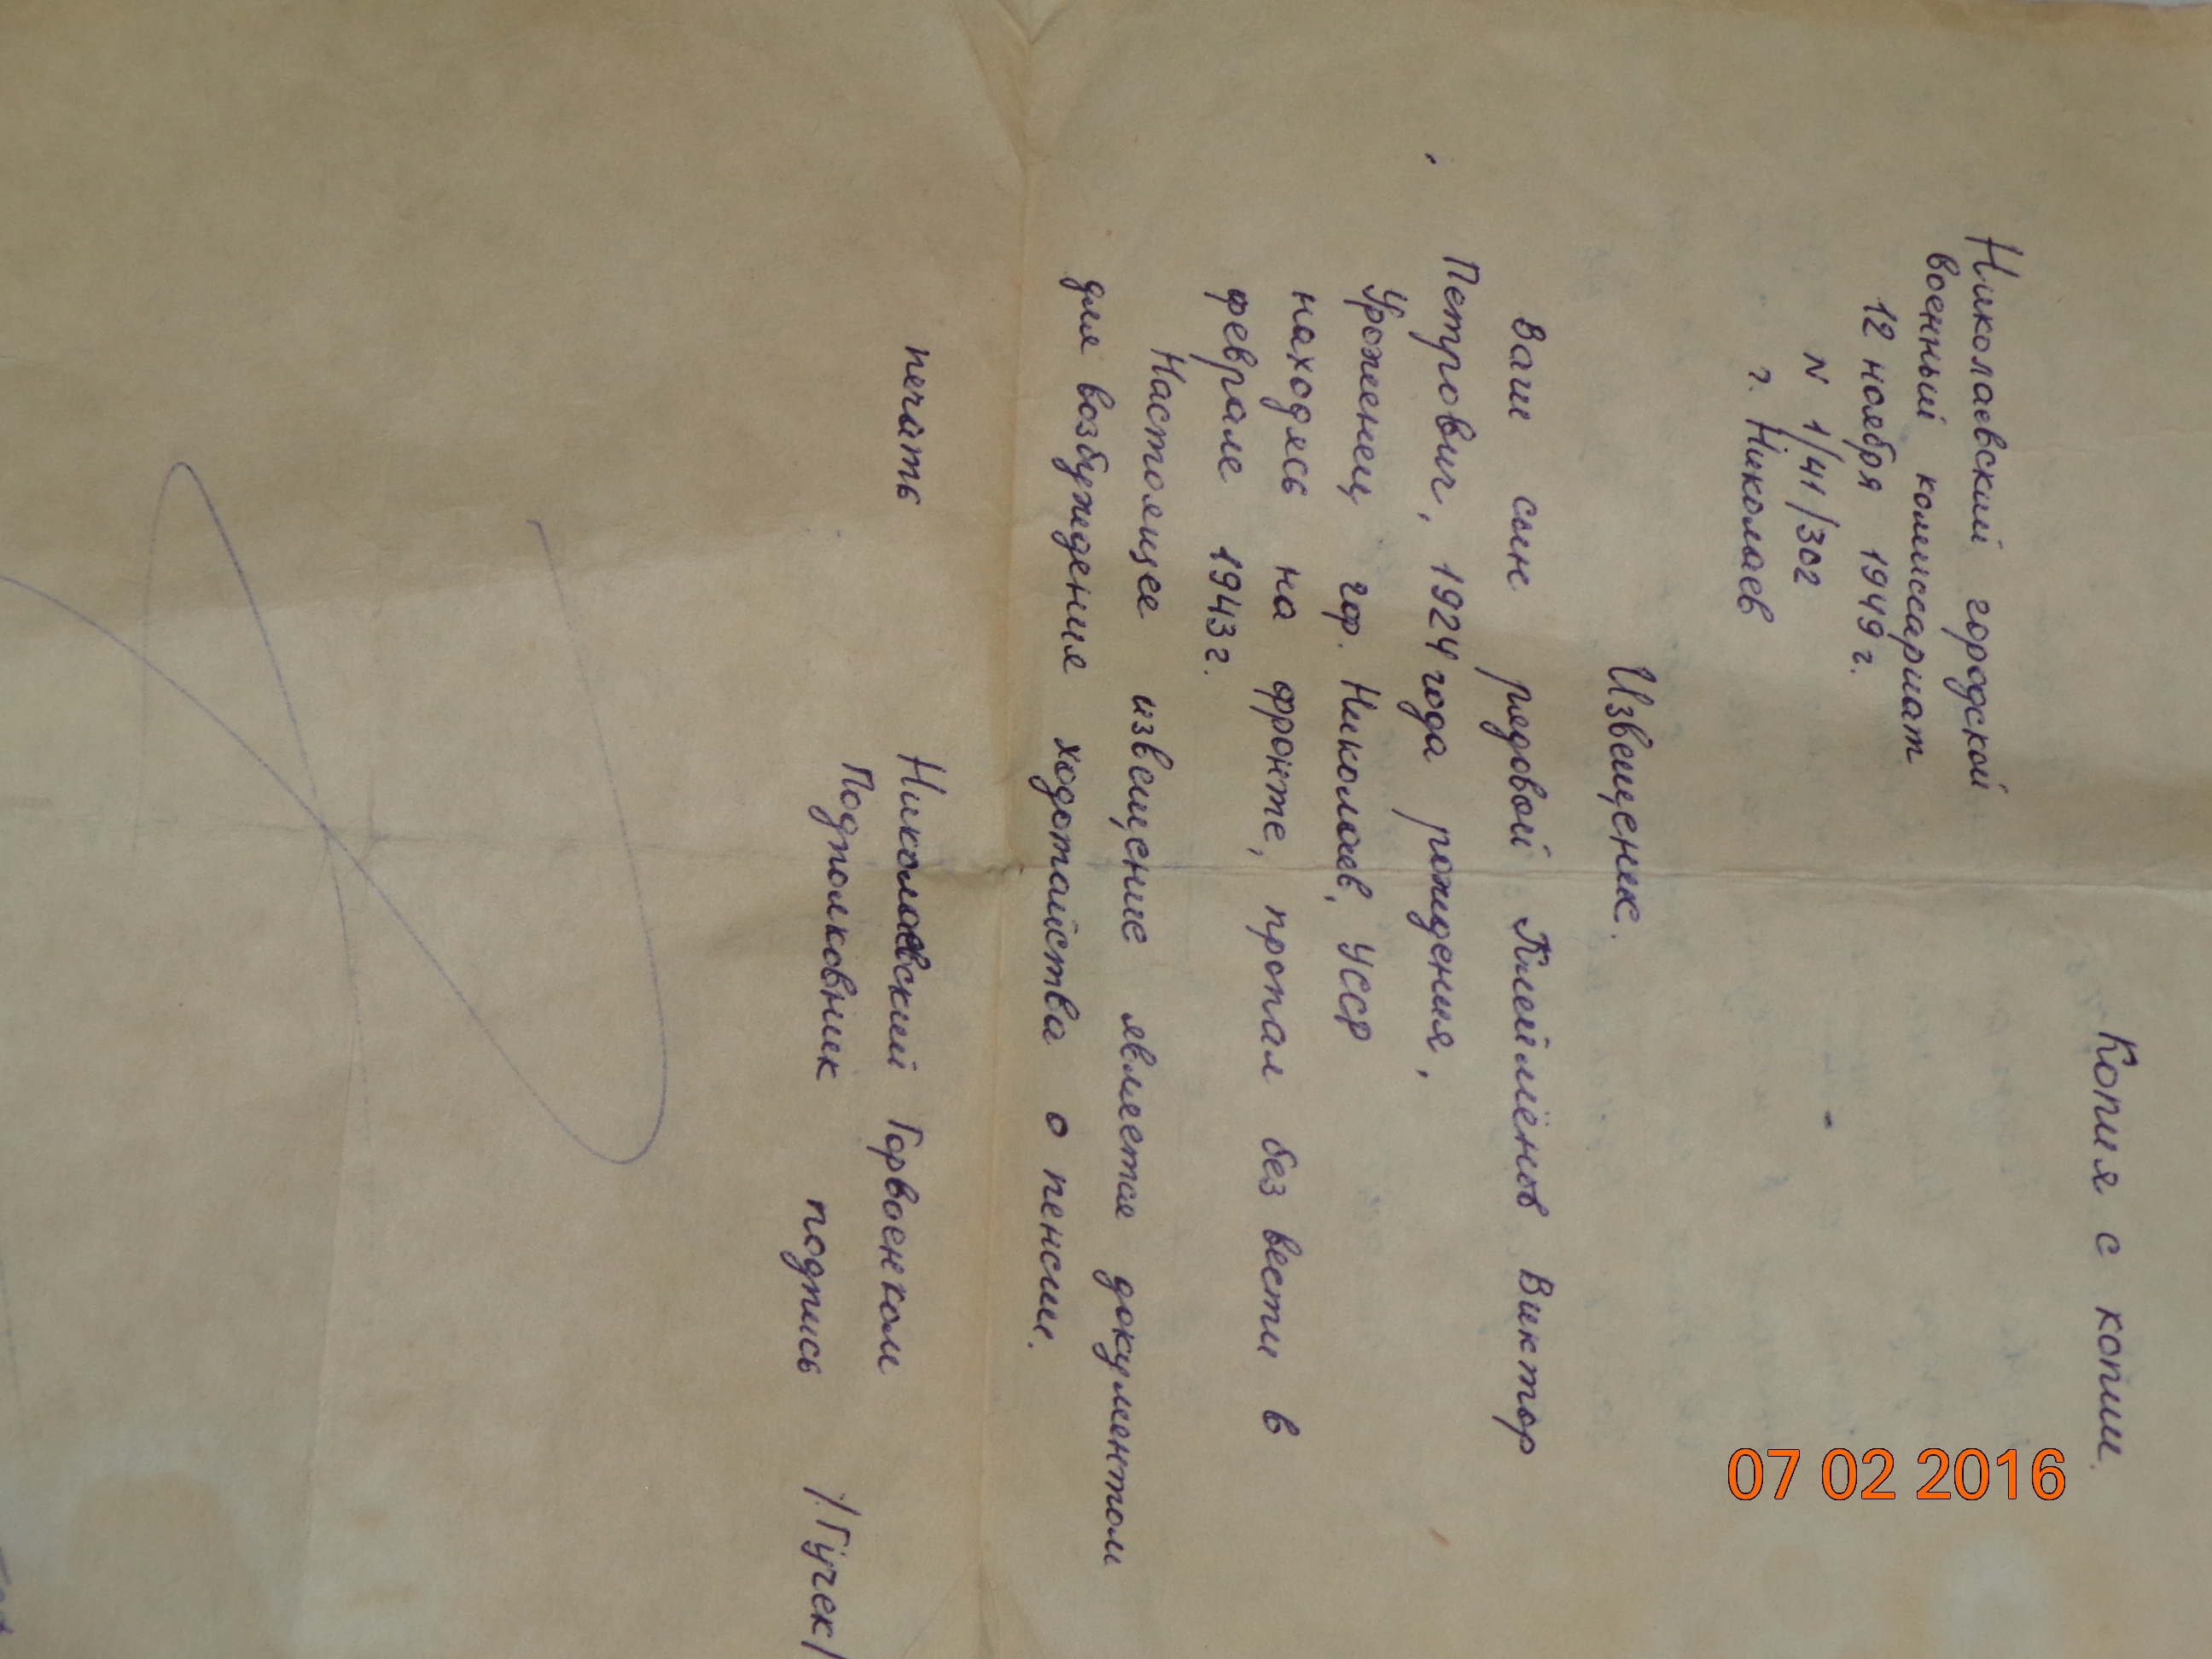 Копия с копии.
Николаевский городской
военный комиссариат
12 ноября 1949 г.
N 1/41/302
г. Николаев
Извещение.
Ваш сын рядовой Клеймёнов Виктор
Петрович, 1924 года рождения,
Уроженец гор. Николаев, УССР
находясь на фронте, пропал без вести в
феврале 1943 г.
Настоящее извещение является документом
для возбуждения ходотайства о пенсии.
печать
Николаевский Горвоенком
Подполковник подпись /Гучек/
07 02 2016